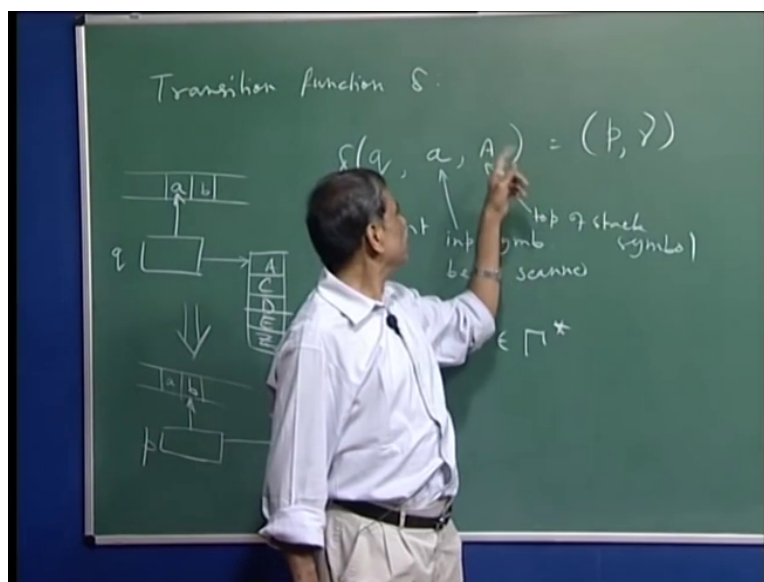 Transition function δ :
δ(q, a, A) = (p, γ)
top of stack
symbol
scanned
∈ Γ*
a b
q
A
C
D
E
Z
a b
p